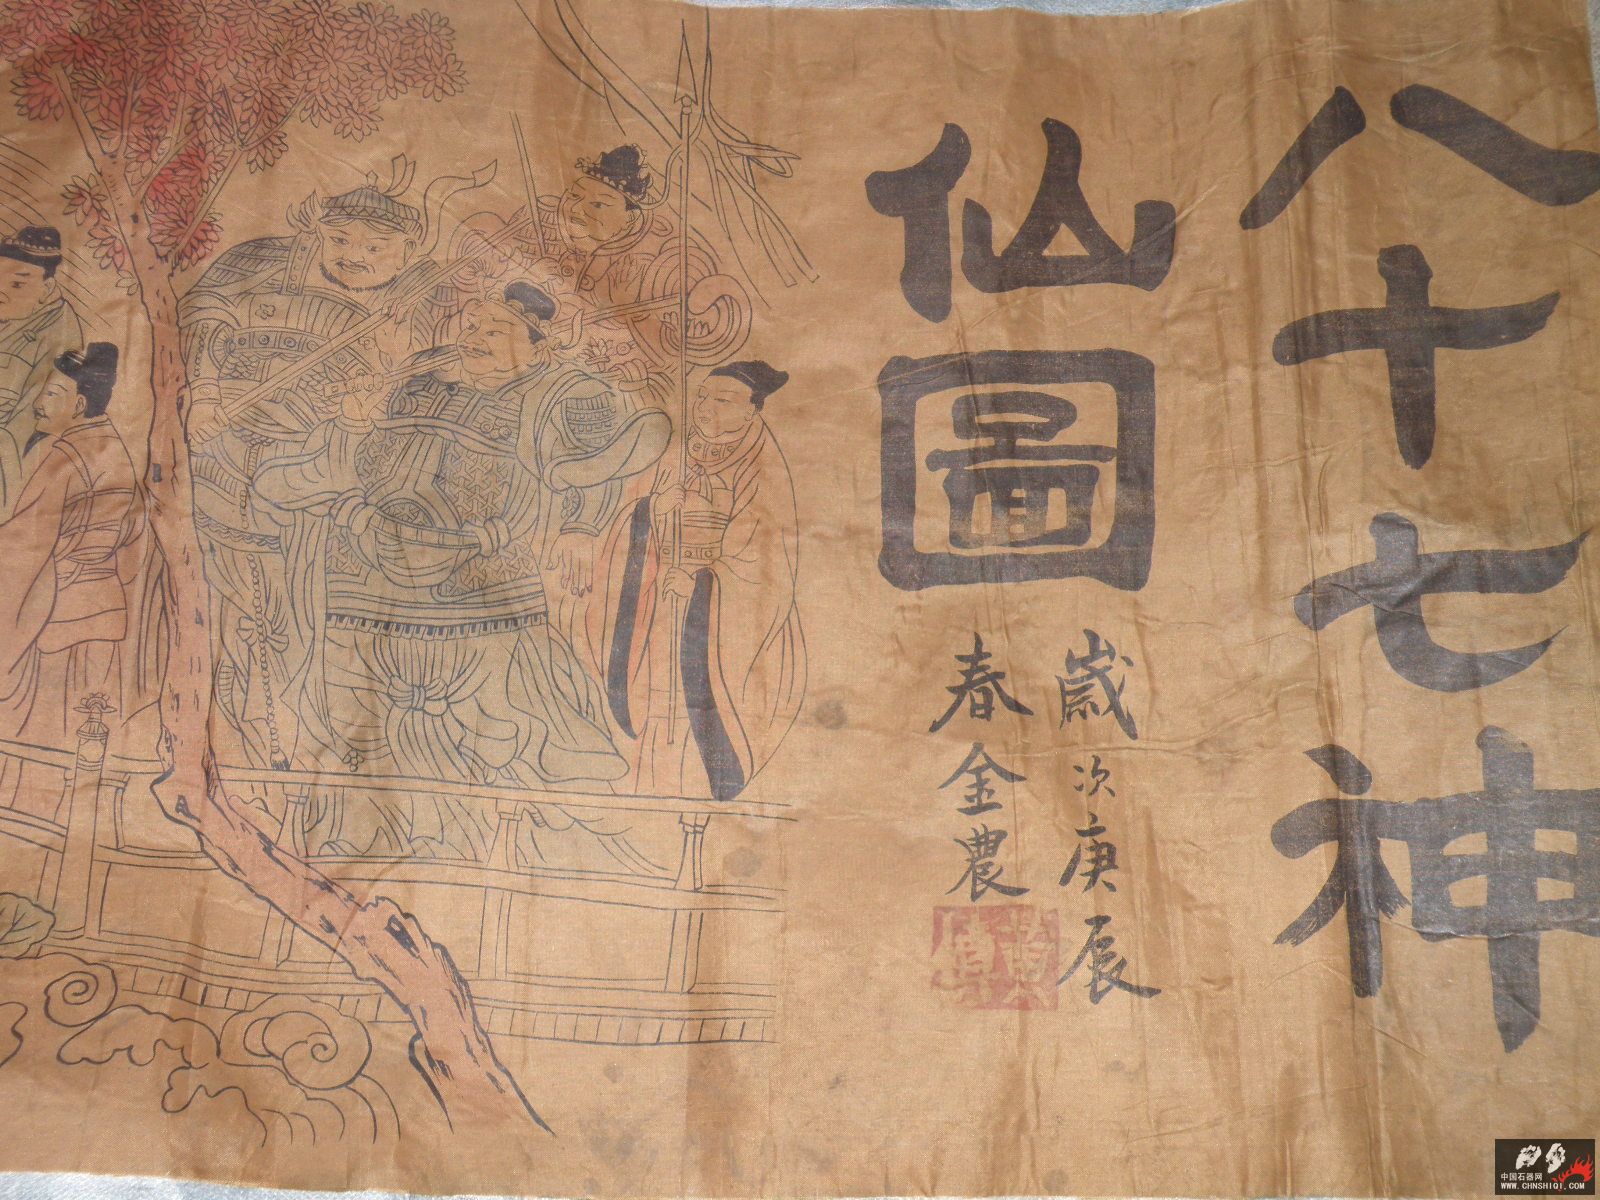 八十七神
仙圖
歲次庚辰
春金農
中国石器网
WWW.CHNSHIQI.COM